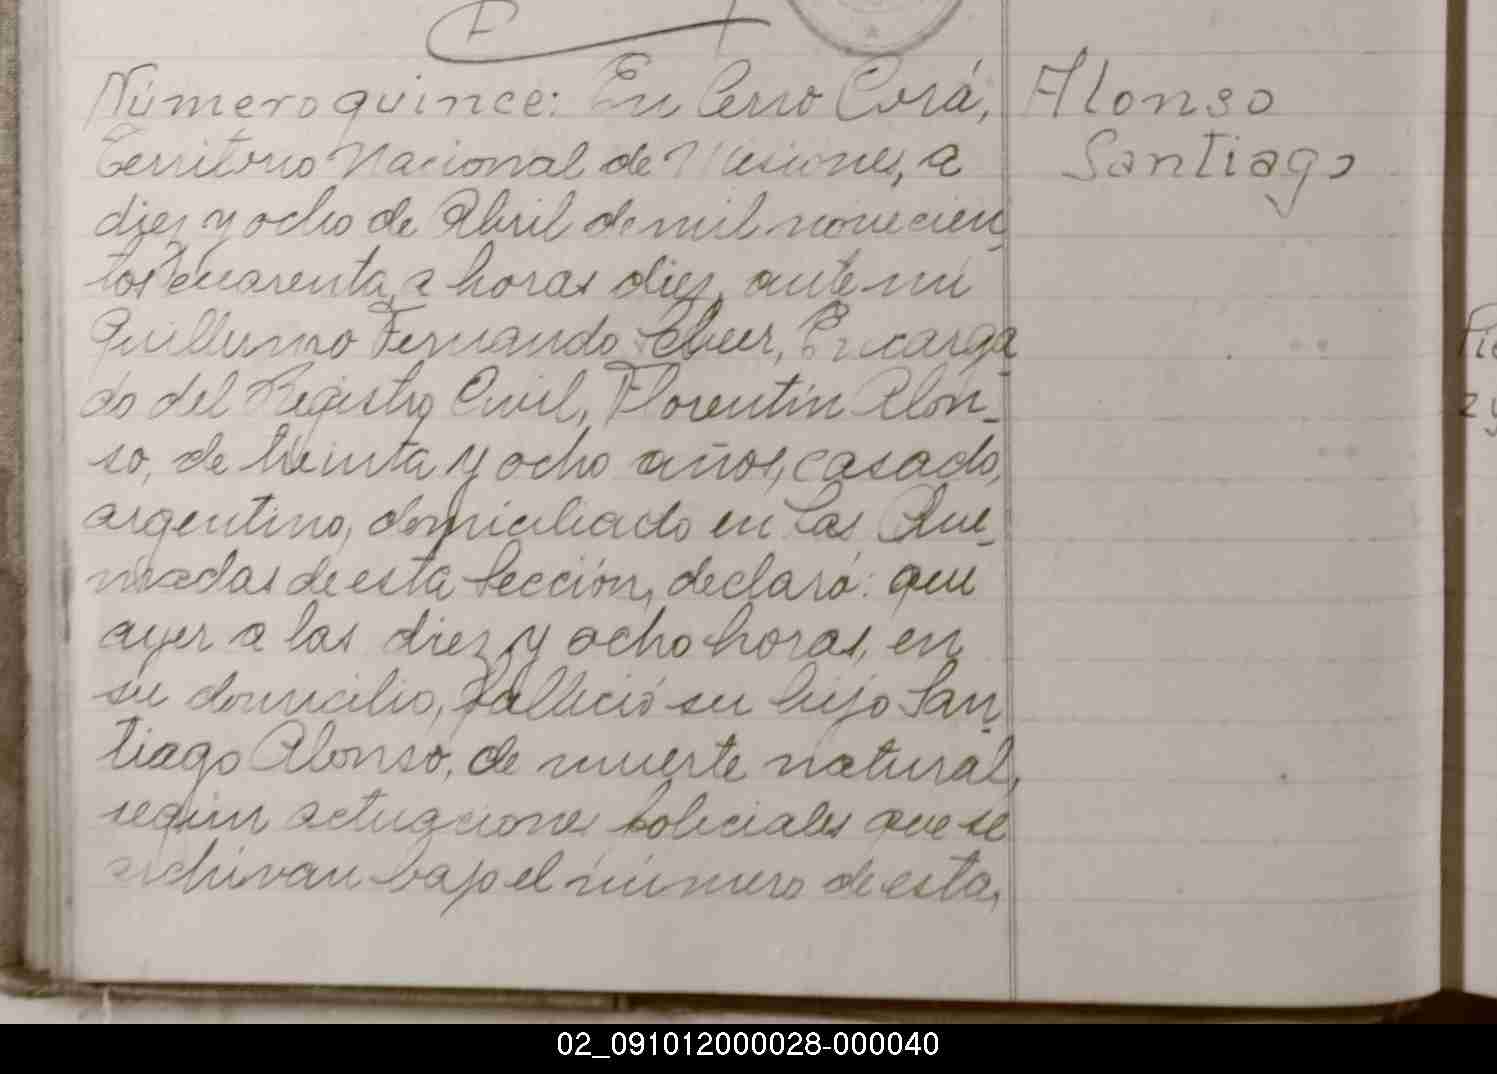 Número quince: En Cerro Corá,
Territorio Nacional de Misiones, a
diez y ocho de Abril de mil novecien
tos cuarenta, a horas diez, ante mi
Guillermo Fernando Encarga
do del Registro Civil, Florentín Alon-
so, de treinta y ocho años, casado,
argentino, domiciliado en Las Que-
madas de esta Sección, declaró: que
ayer a las diez y ocho horas, en
su domicilio, falleció su hijo San-
tiago Alonso, de muerte natural,
según actuaciones policiales que se
archivan bajo el número de esta,
Alonso
Santiago
02_091012000028-000040